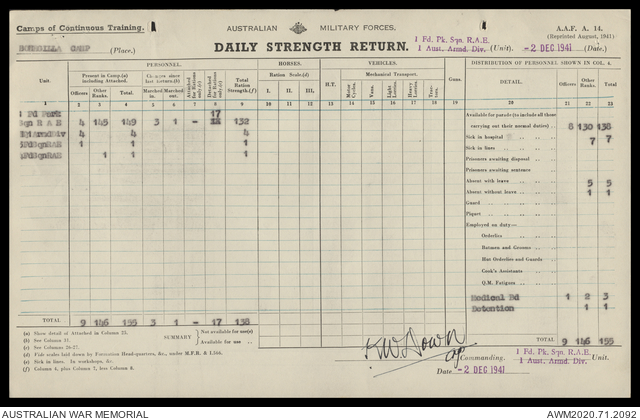 Camps of Continuous Training.
AUSTRALIAN MILITARY FORCES.
A.A.F. A. 14.
(Reprinted August, 1941)
CAMP (Place.)
DAILY STRENGTH RETURN.
1 Fd. Pk. Sqn. R.A.E.
1 Aust. Armd. Div. (Unit).
-2 DEC 1941 (Date.)
PERSONNEL. HORSES. VEHICLES. Guns. DISTRIBUTION OF PERSONNEL SHOWN IN COL. 4.
Unit. Present in Camp,(a) including Attached. Changes since last return.(b) Attached for Rations only.(c) Detached for Rations only.(c) Total Ration Strength.(f) Ration Scale.(d) H.T. Mechanical Transport. DETAIL. Officers Other Ranks. Total.
Officers Other Ranks. Total. Marched in. Marched out. I. II. III. Motor Cycles. Vans. Light Lorries. Heavy Lorries. Tractors.
1 2 3 4 5 6 7 8 9 10 11 12 13 14 15 16 17 18 19 20 21 22 23
1 Fd Park 17
Sqn R A E 4 145 149 3 1 - 132
4 4 4
1 1 1
1 1 1
Available for parade (to include all those
carrying out their normal duties) 8 130 138
Sick in hospital 7 7
Sick in lines
Prisoners awaiting disposal
Prisoners awaiting sentence
Absent with leave 5 5
Absent without leave 1 1
Guard
Piquet
Employed on duty—
Orderlies
Batmen and Grooms
Hut Orderlies and Guards
Cook's Assistants
Q.M. Fatigues
Medical Bd 1 2 3
Detention 1 1
TOTAL 9 146 155 3 1 - 17 138
TOTAL 9 146 155
(a) Show detail of Attached in Column 23.
(b) See Column 31.
(c) See Columns 26-27.
(d) Vide scales laid down by Formation Head-quarters, &c., under M.F.R. & I.166.
(e) Sick in lines. In workshops, &c.
(f) Column 4, plus Column 7, less Column 8.
SUMMARY
Not available for use(e)
Available for use
Commanding. 1 Fd. Pk. Sqn. R.A.E.
1 Aust. Armd. Div. Unit.
Date -2 DEC 1941
AUSTRALIAN WAR MEMORIAL AWM2020.71.2092